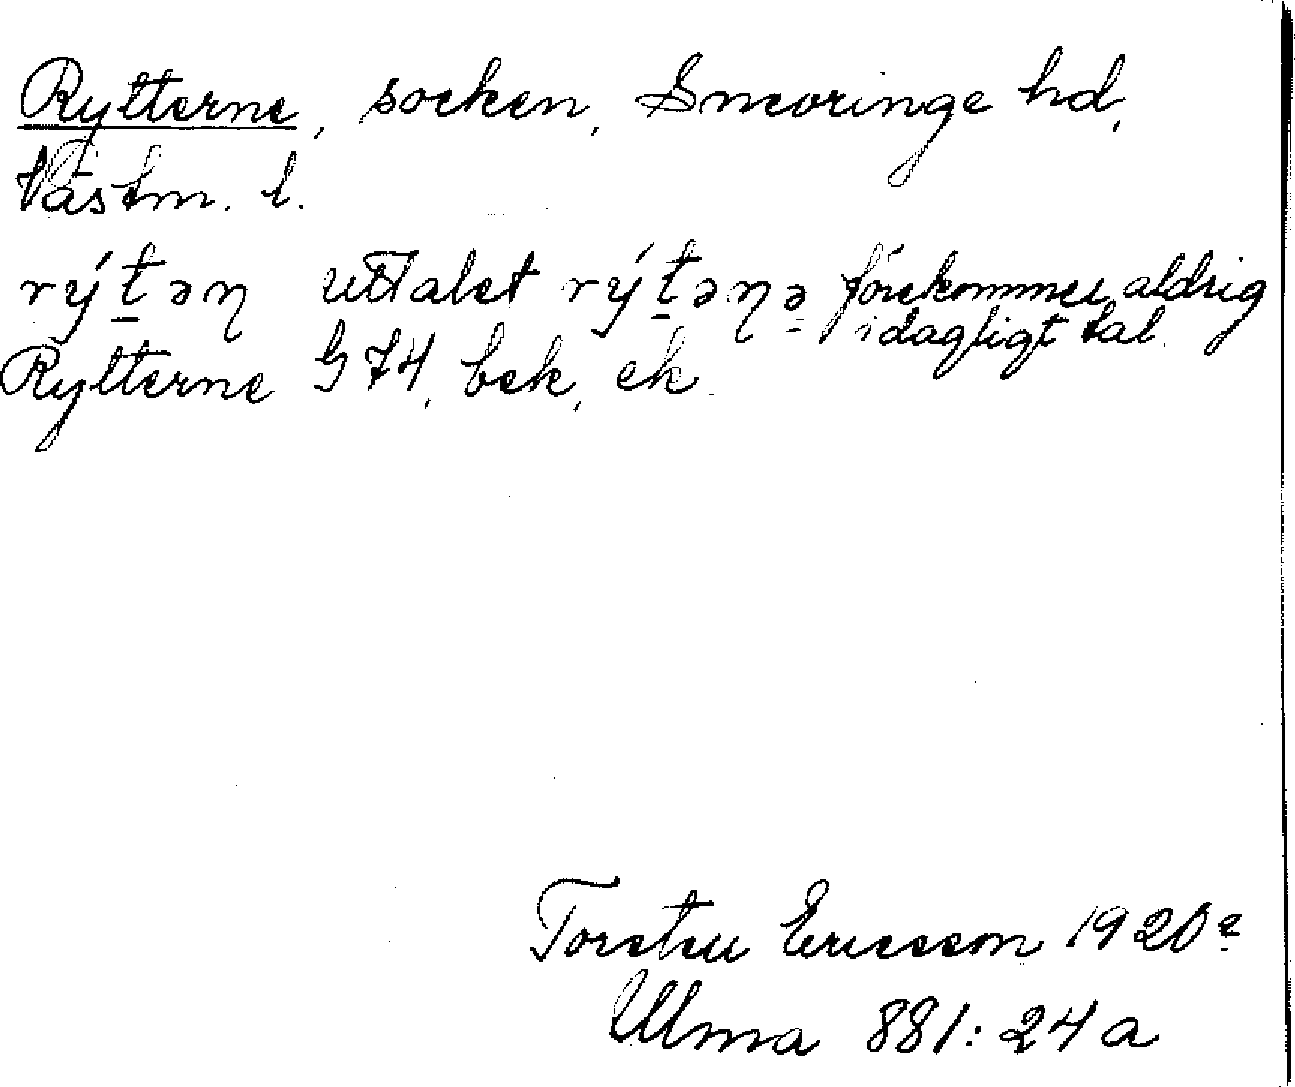 Rytterne, socken, Snevringe hd,
Västm. l.
rý̱təƞ uttalet rý̱təƞə förekommer aldrig
i dagligt tal.
Rytterne G 74, bek, ek.
Torsten Ericsson 1920
Ulma 881:24a